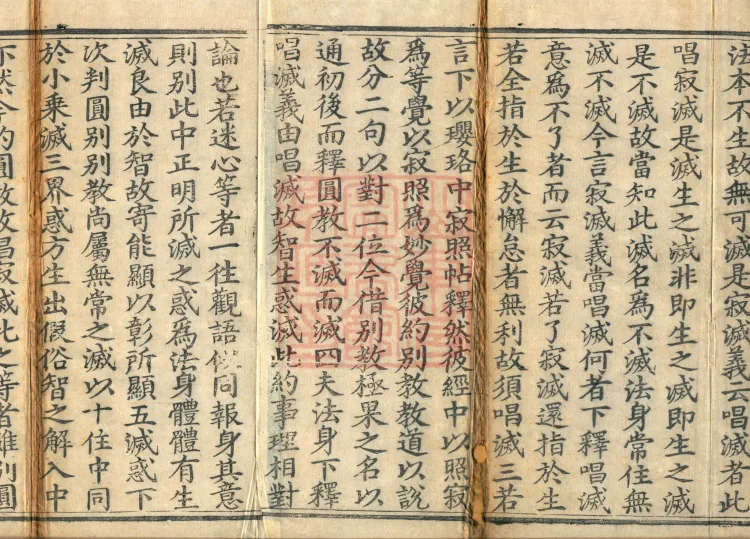 法本不生故無可滅是寂滅義云唱滅者此
唱寂滅是滅生之滅非即生之滅即生之滅
是不滅故當知此滅名爲不滅法身常住無
滅不滅今言寂滅義當唱滅何者下釋唱滅
意爲不了者而云寂滅若了寂滅還指於生
若全指於生於懈怠者無利故須唱滅三若
言下以瓔珞中寂照帖釋然彼經中以照寂
爲等覺以寂照爲妙覺彼約別教教道以說
故分二句以對二位今借別教極果之名以
通初後而釋圓教不滅而滅四夫法身下釋
唱滅義由唱滅故智生惑滅此約事理相對
論也若迷心等者一往觀語似同報身其意
則別此中正明所滅之惑爲法身體體有生
滅良由於智故寄能顯以彰所顯五滅惑下
次判圓別別教尚屬無常之滅以十住中同
於小乘滅三界惑方生出假俗智之解入中
亦然今約圓教故唱寂滅此之等者雖別圓